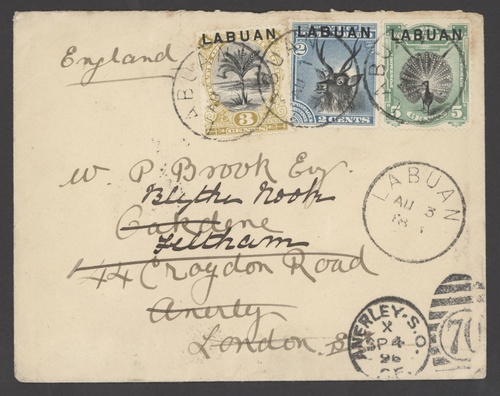 England
LABUAN
LABUAN
LABUAN
3
CENTS
2
2 CENTS
5
5
W. P. Brook Esq.
Blythe Nook
Oakdene
Feltham
44 Croydon Road
Anerly
London
LABUAN
AU 3
ANERLEY. S.O.
X
SP 4
96
70